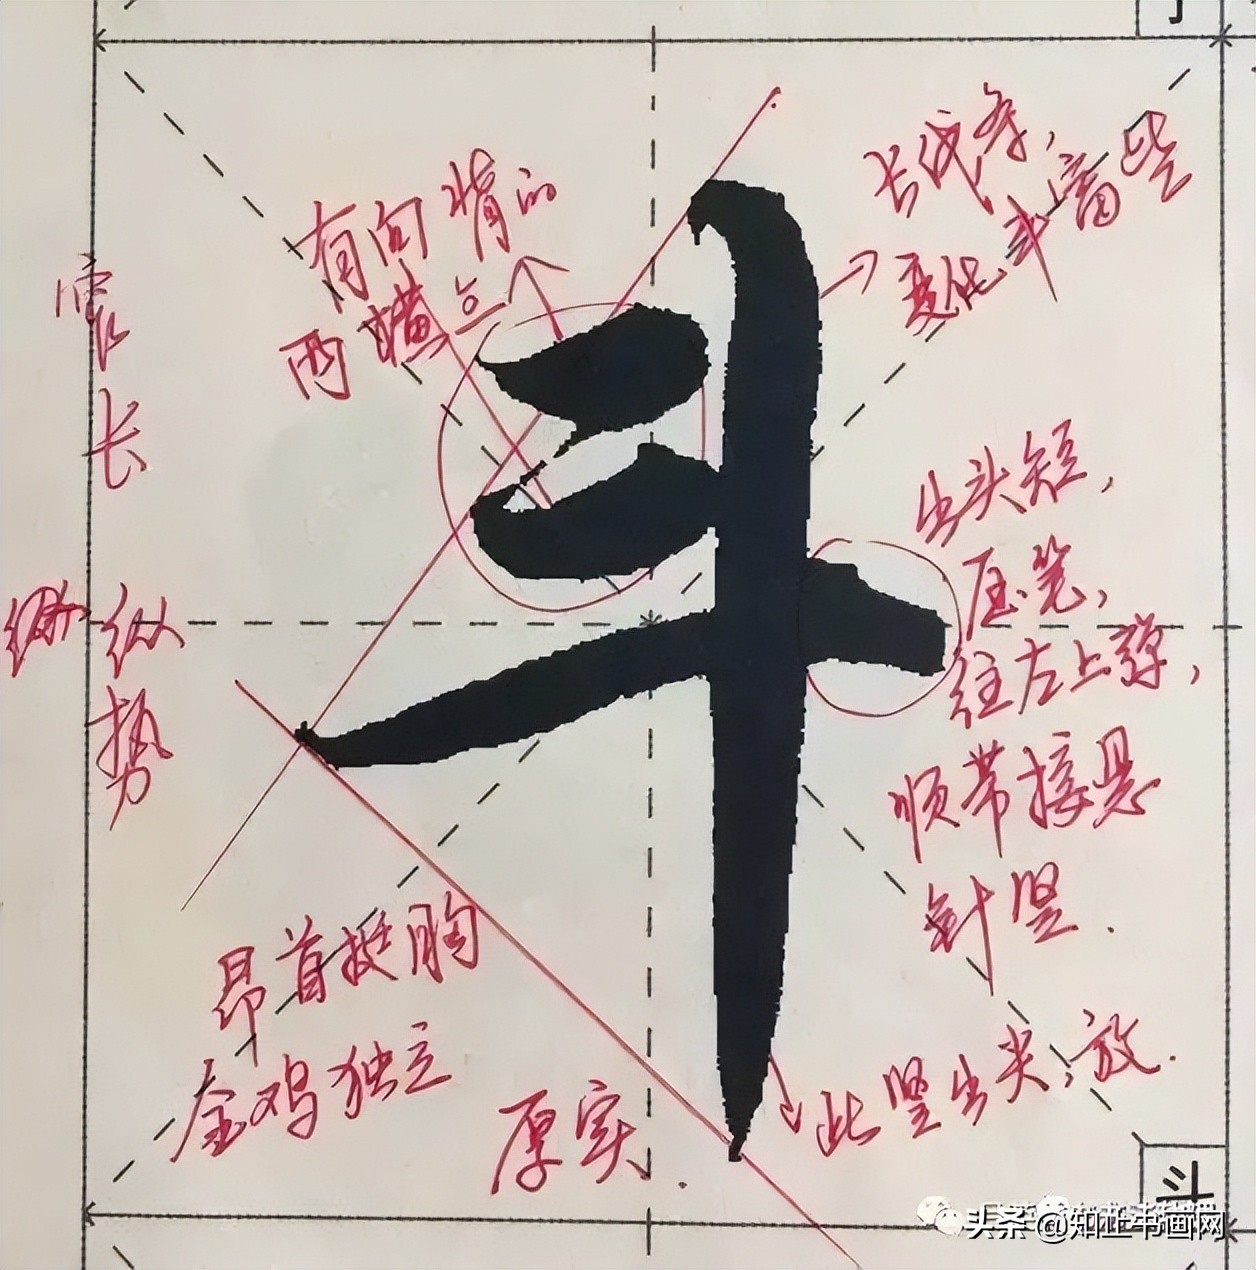 有向背的
两横点
长线条,
变化丰富些
长
纵势
斗
出头短,
压笔,
往左上弹,
顺带接悬
针竖.
昂首挺胸
金鸡独立
厚实.
此竖出尖,放.
斗
头条 @知正书画网